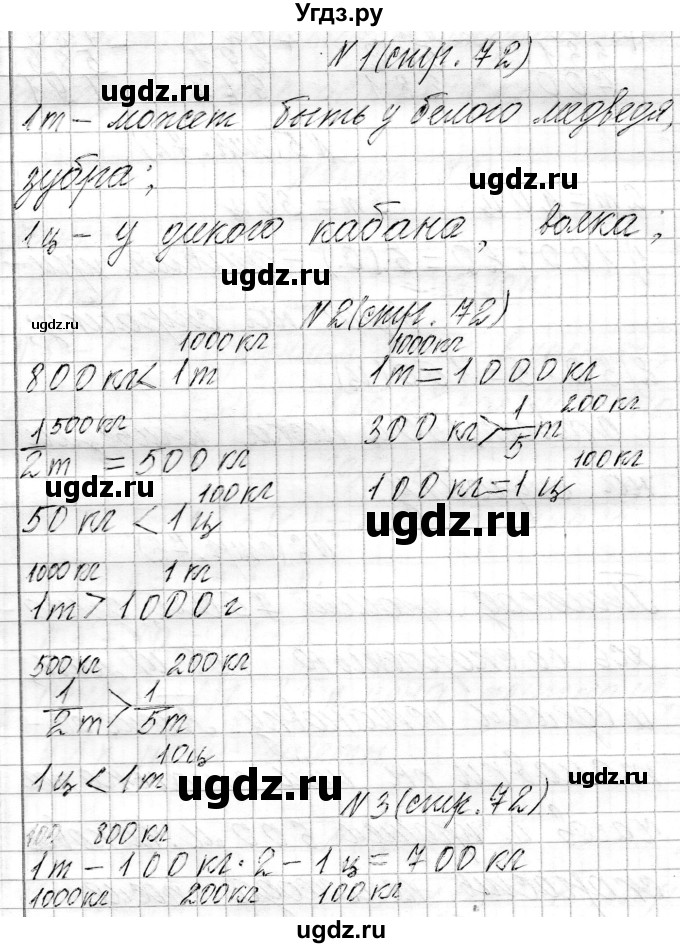 Угдз.ру
N 1 (стр. 72)
ugdz.ru
1т - может быть у белого медведя,
зубра;
ugdz.ru
1ц - у дикого кабана, волка;
ugdz.ru
N 2 (стр. 72)
ugdz.ru
1000 кг 1000 кг
800 кг < 1т 1т = 1000 кг
500 кг 200 кг
1/2 т = 500 кг 300 кг > 1/5 т
ugdz.ru 100 кг 100 кг
50 кг < 1ц 100 кг = 1ц
ugdz.ru
1000 кг 1 кг
1т > 1000 г
500 кг 200 кг
1/2 т > 1/5 т
10ц
1ц < 1т
ugdz.ru ugdz.ru
N 3 (стр. 72)
800 кг
1т - 100 кг · 2 - 1ц = 700 кг
1000 кг 200 кг 100 кг
ugdz.ru